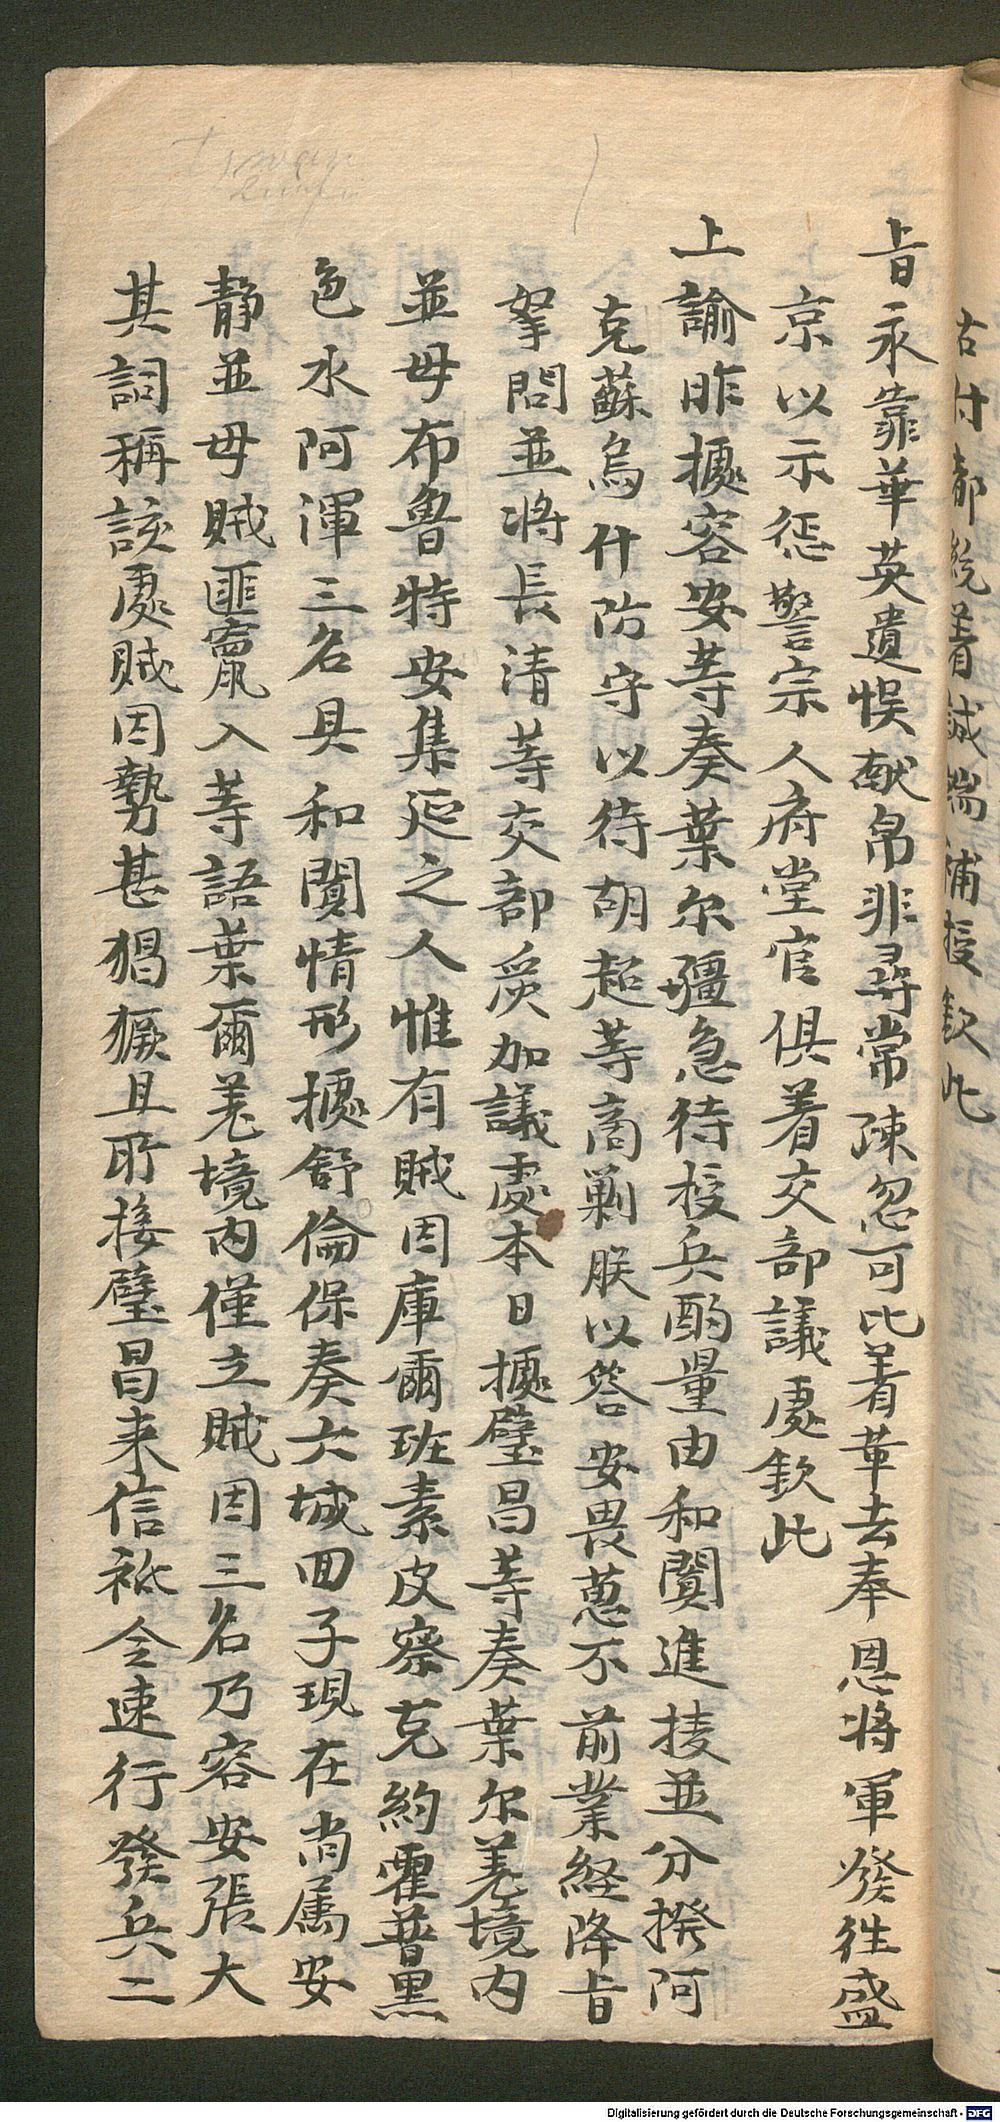 古什都統着誠端補授欽此
旨永靠華英遺悮献帛非尋常踈忽可比着革去奉恩将軍發徃盛
京以示懲警宗人府堂官俱着交部議處欽此
上諭昨據容安等奏葉尔疆急待授兵酌量由和闐進援並分撥阿
克蘇烏什防守以待胡超等啇剿朕以答安畏葸不前業経降旨
拏問並将長清等交部嚴加議處本日據璧昌等奏葉尔羌境内
並毋布魯特安集延之人惟有賊因庫爾班素皮察克約霍普黒
色水阿渾三名具和闐情形據舒倫保奏六城回子現在尚属安
静並毋賊匪竄入等語葉爾羌境内僅立賊因三名乃容安張大
其詞稱該處賊因勢甚猖獗且所接璧昌来信祗令速行發兵二
Digitalisierung gefördert durch die Deutsche Forschungsgemeinschaft - DFG